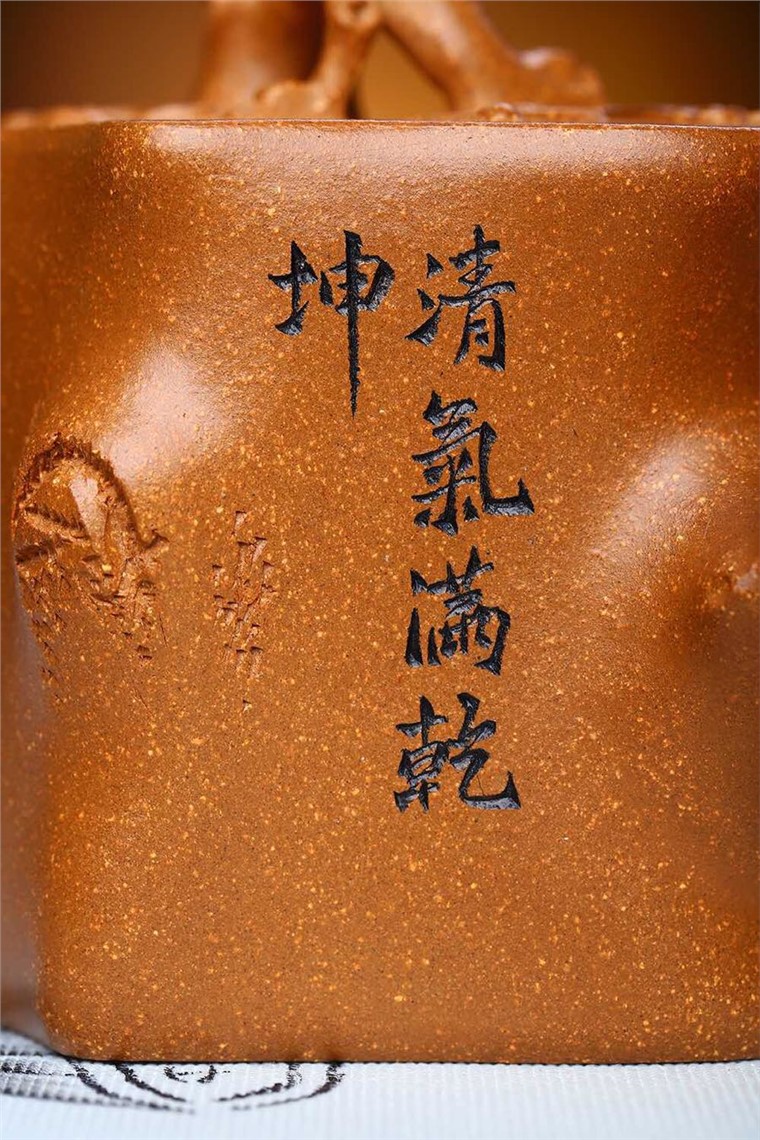 清氣滿乾
坤